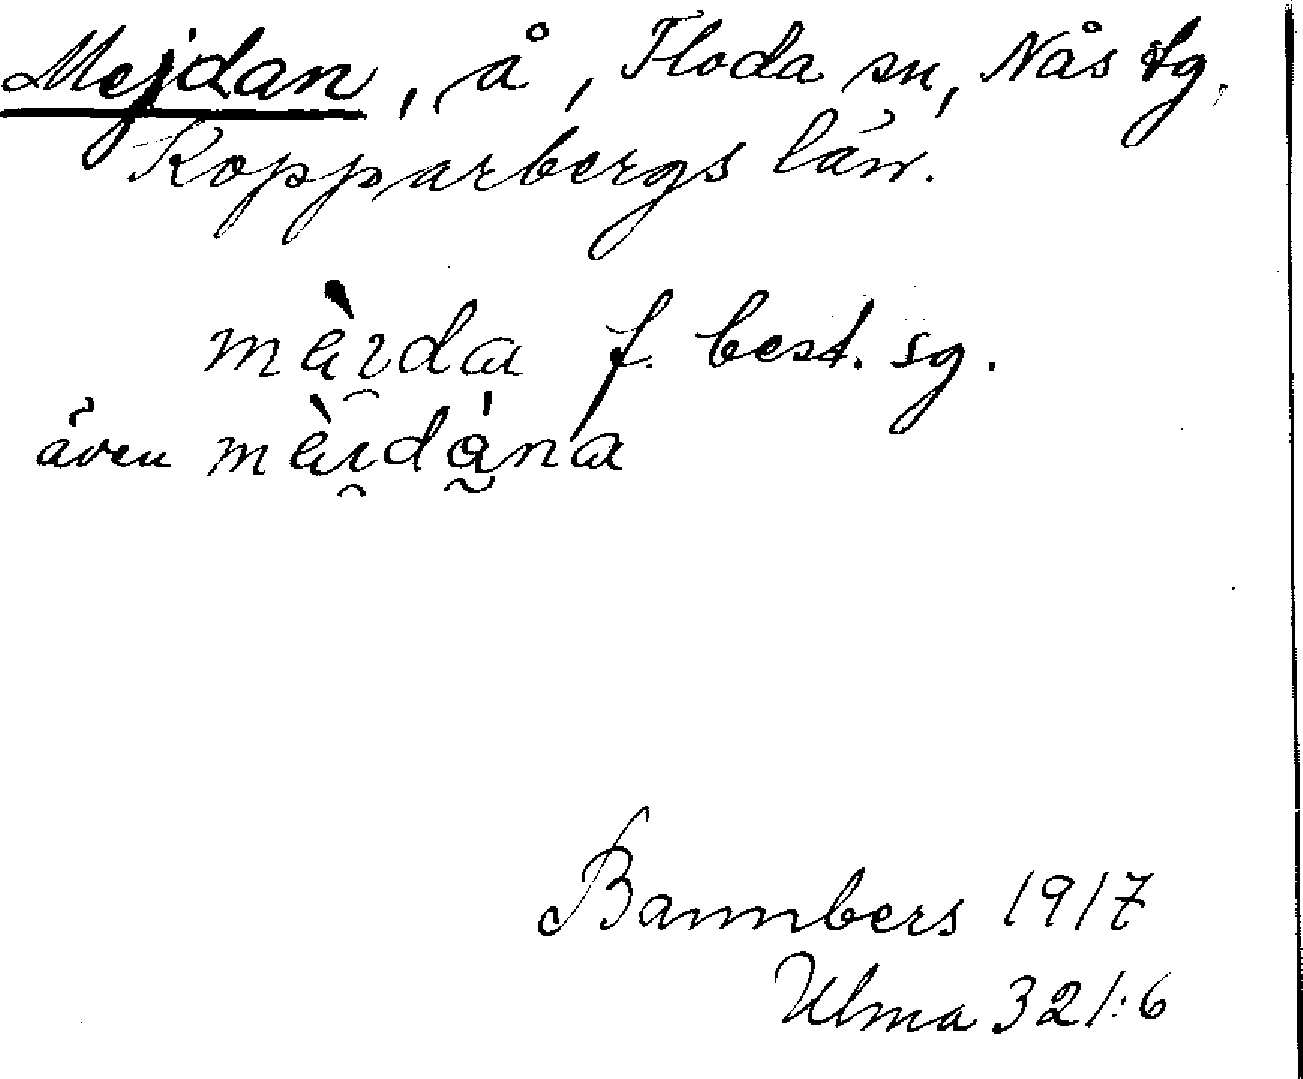 Mejdan, å, Floda sn, Nås tg,
Kopparbergs län.
mè̀ɪ̯da f. best. sg.
även mèɪ̯dána
Bannbers 1917
Ulma 321:6